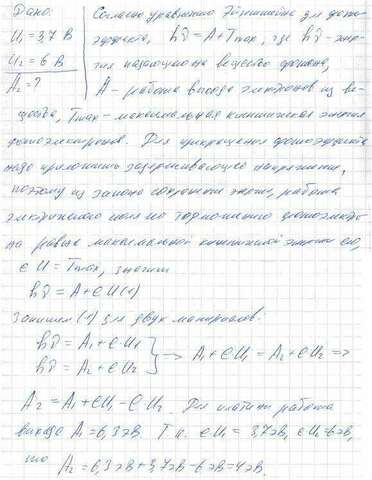 Дано:
U₁ = 3,7 В
U₂ = 6 В
A₂ = ?
Согласно уравнению Эйнштейна для фото-
эффекта, hν = A + Tmax, где hν - энер-
гия падающего на вещество фотона,
A - работа выхода электронов из ве-
щества, Tmax - максимальная кинетическая энергия
фотоэлектронов. Для прекращения фотоэффекта
надо приложить задерживающее напряжение,
поэтому из закона сохранения энергии, работа
электрического поля по торможению фотоэлектро-
на равна максимальной кинетической энергии его,
eU = Tmax, значит
hν = A + eU (1)
Запишем (1) для двух материалов:
hν = A₁ + eU₁
hν = A₂ + eU₂
} → A₁ + eU₁ = A₂ + eU₂ =>
A₂ = A₁ + eU₁ - eU₂. Для платины работа
выхода A₁ = 6,3 эВ. Т.к. eU₁ = 3,7 эВ, eU₂ = 6 эВ,
то A₂ = 6,3 эВ + 3,7 эВ - 6 эВ = 4 эВ.